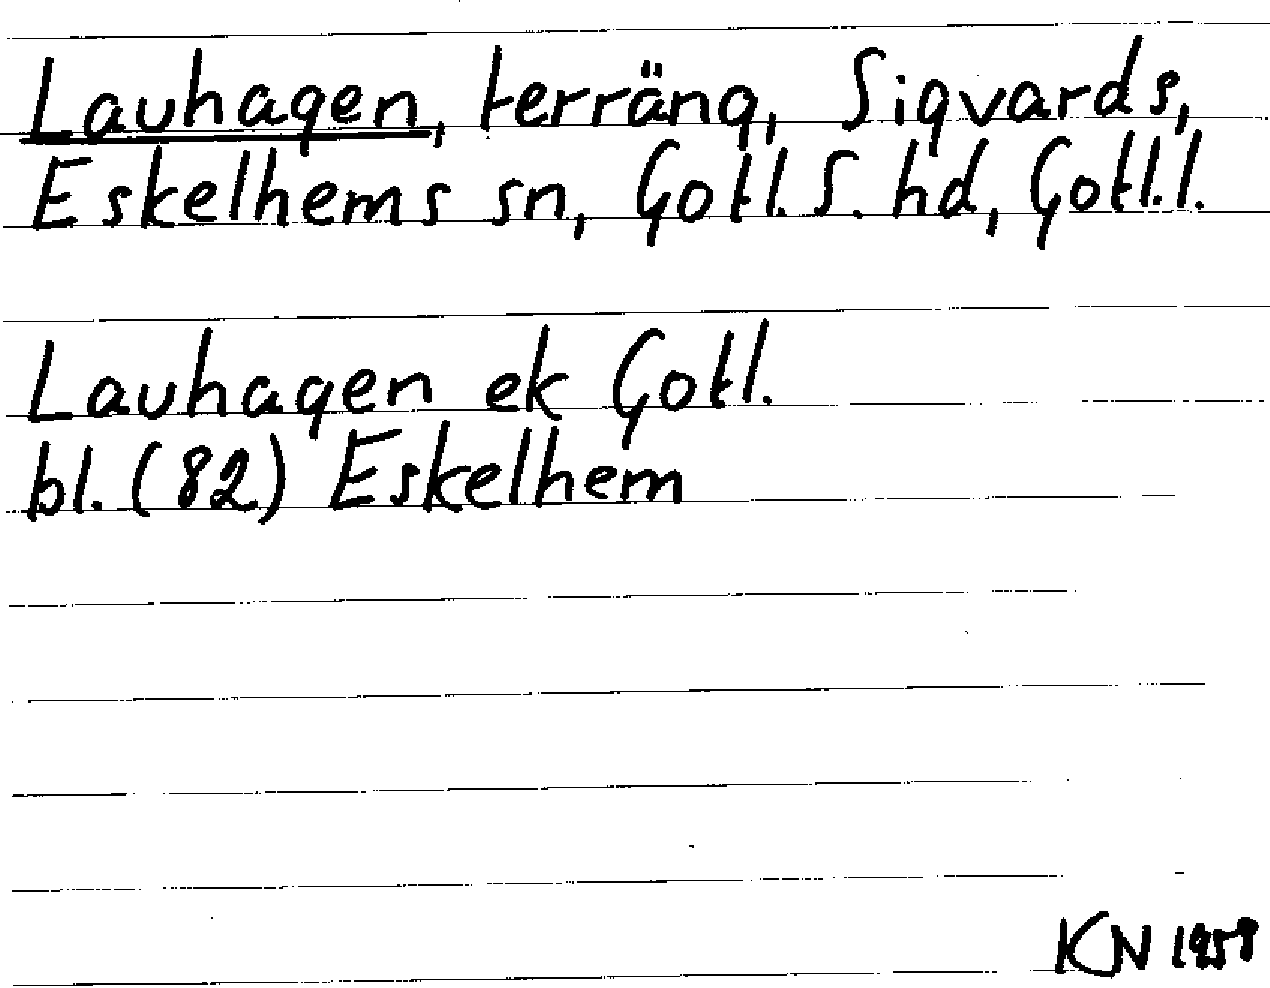 Lauhagen, terräng, Sigvards,
Eskelhems sn, Gotl. S. hd, Gotl.l.
Lauhagen ek Gotl.
bl. (82) Eskelhem
KN 1958